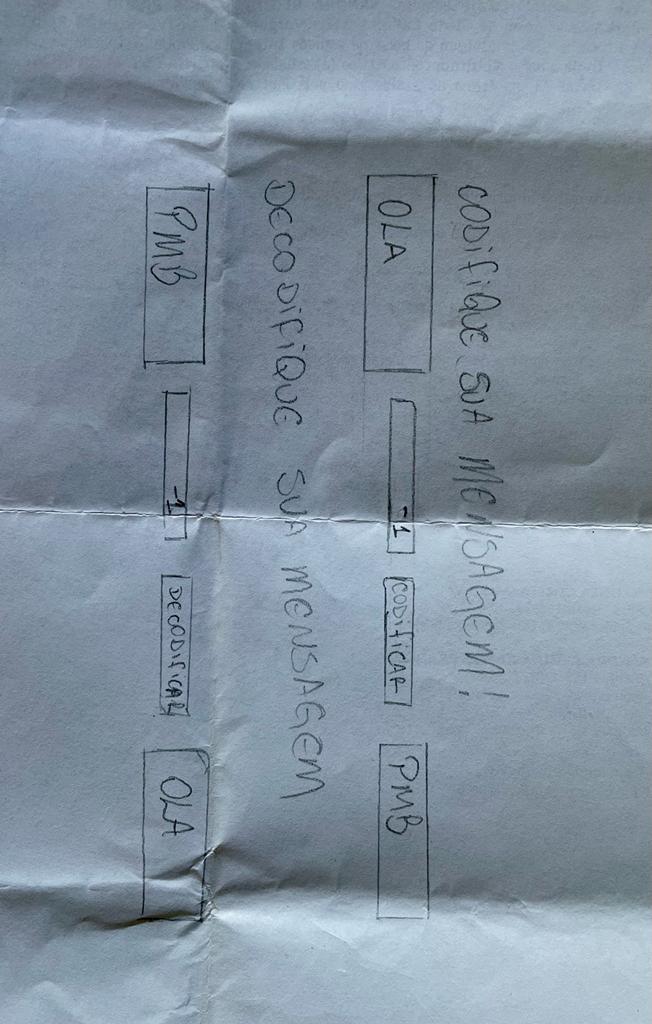 CODIFIQUE SUA MENSAGEM!
OLA -1 CODIFICAR PMB
DECODIFIQUE SUA MENSAGEM
PMB -1 DECODIFICAR OLA